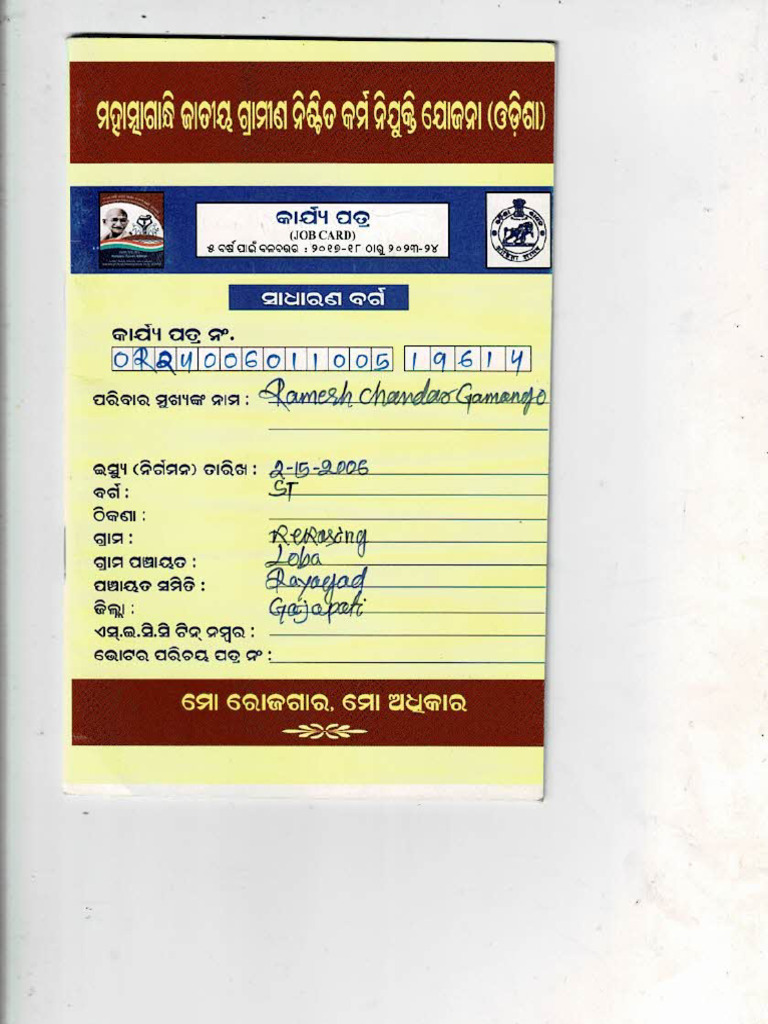 ମହାତ୍ମାଗାନ୍ଧି ଜାତୀୟ ଗ୍ରାମୀଣ ନିଶ୍ଚିତ କର୍ମ ନିଯୁକ୍ତି ଯୋଜନା (ଓଡ଼ିଶା)
କାର୍ଯ୍ୟ ପତ୍ର
(JOB CARD)
୫ ବର୍ଷ ପାଇଁ ବଳବତ୍ତର : ୨୦୧୭-୧୮ ଠାରୁ ୨୦୨୩-୨୪
ସାଧାରଣ ବର୍ଗ
କାର୍ଯ୍ୟ ପତ୍ର ନଂ.
OR24006011005 19614
ପରିବାର ମୁଖ୍ୟଙ୍କ ନାମ : Ramesh Chandar Gamango
ଇସ୍ୟୁ (ନିର୍ଗମନ) ତାରିଖ : 2-15-2006
ବର୍ଗ : ST
ଠିକଣା :
ଗ୍ରାମ : Rerasing
ଗ୍ରାମ ପଞ୍ଚାୟତ : Loba
ପଞ୍ଚାୟତ ସମିତି : Rayagad
ଜିଲ୍ଲା : Gajapati
ଏସ୍.ଇ.ସି.ସି ଟିନ୍ ନମ୍ବର :
ଭୋଟର ପରିଚୟ ପତ୍ର ନଂ :
ମୋ ରୋଜଗାର, ମୋ ଅଧିକାର